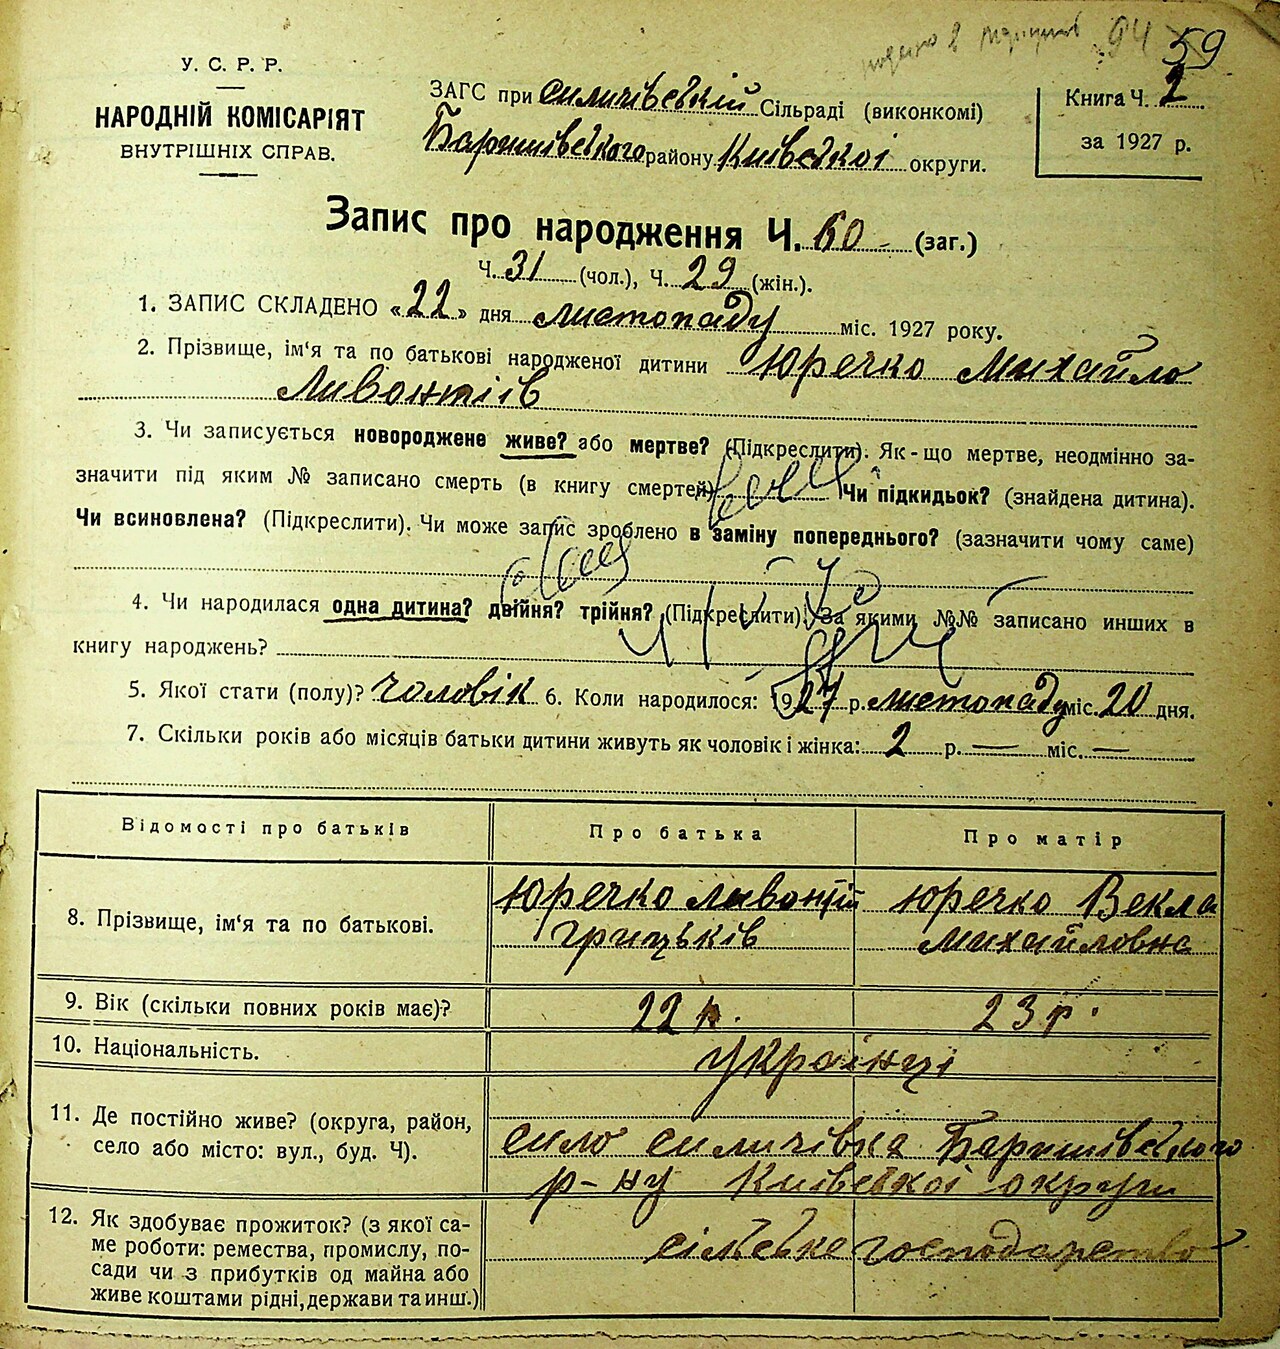 94 59
У. С. Р. Р.
НАРОДНІЙ КОМІСАРІЯТ
ВНУТРІШНІХ СПРАВ.
ЗАГС при Селичівській Сільраді (виконкомі)
Баришівського району Київської округи.
Книга Ч. 2
за 1927 р.
Запис про народження Ч. 60 (заг.)
Ч. 31 (чол.), Ч. 29 (жін.).
1. ЗАПИС СКЛАДЕНО «22» дня листопаду міс. 1927 року.
2. Прізвище, ім'я та по батькові народженої дитини Юречко Михайло
Ливонтіїв
3. Чи записується новороджене живе? або мертве? (Підкреслити). Як-що мертве, неодмінно за-
значити під яким № записано смерть (в книгу смертей) Чи підкидьок? (знайдена дитина).
Чи всиновлена? (Підкреслити). Чи може запис зроблено в заміну попереднього? (зазначити чому саме)
4. Чи народилася одна дитина? двійня? трійня? (Підкреслити). За якими №№ записано инших в
книгу народжень?
5. Якої стати (полу)? чоловік 6. Коли народилося: 1927 р. листопаду міс. 20 дня.
7. Скільки років або місяців батьки дитини живуть як чоловік і жінка: 2 р. — міс. —
Відомості про батьків Про батька Про матір
8. Прізвище, ім'я та по батькові. Юречко Ливонтій Юречко Векла
Грицьків Михайловна
9. Вік (скільки повних років має)? 22 р. 23 р.
10. Національність. українці
11. Де постійно живе? (округа, район,
село або місто: вул., буд. Ч).
село Селичівка Баришівського
р-ну Київської округи
12. Як здобуває прожиток? (з якої са-
ме роботи: ремества, промислу, по-
сади чи з прибутків од майна або
живе коштами рідні, держави та инш.)
сільське господарство